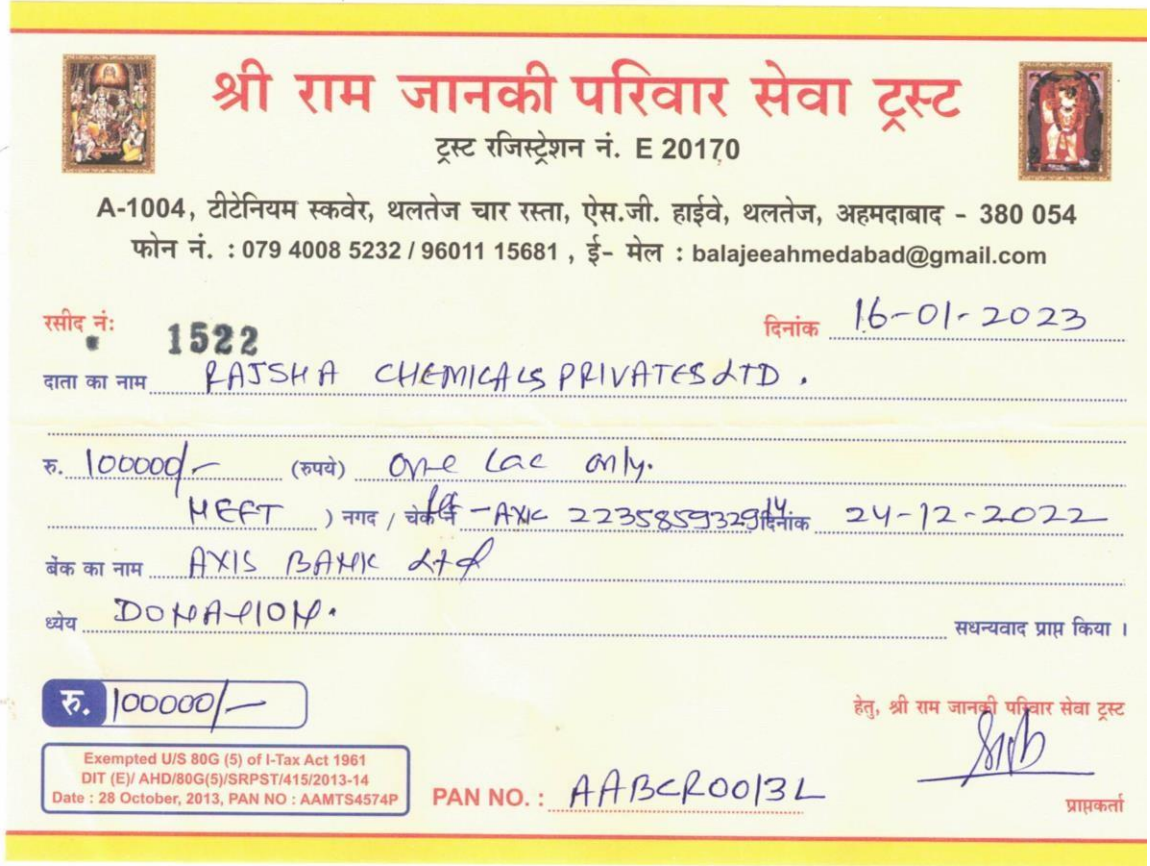 श्री राम जानकी परिवार सेवा ट्रस्ट
ट्रस्ट रजिस्ट्रेशन नं. E 20170
A-1004, टीटेनियम स्कवेर, थलतेज चार रस्ता, ऐस.जी. हाईवे, थलतेज, अहमदाबाद - 380 054
फोन नं. : 079 4008 5232 / 96011 15681 , ई- मेल : balajeeahmedabad@gmail.com
रसीद नं: 1522 दिनांक 16-01-2023
दाता का नाम RAJSHA CHEMICALS PRIVATES LTD.
रु. 100000/- (रुपये) one Lac only.
NEFT ) नगद / चेक नं - AXIC 223585932914 दिनांक 24-12-2022
बेंक का नाम AXIS BANK Ltd
ध्येय DONATION. सधन्यवाद प्राप्त किया ।
रु. 100000/-
हेतु, श्री राम जानकी परिवार सेवा ट्रस्ट
Exempted U/S 80G (5) of I-Tax Act 1961
DIT (E)/ AHD/80G(5)/SRPST/415/2013-14
Date : 28 October, 2013, PAN NO : AAMTS4574P
PAN NO. : AABCR0013L
प्राप्तकर्ता